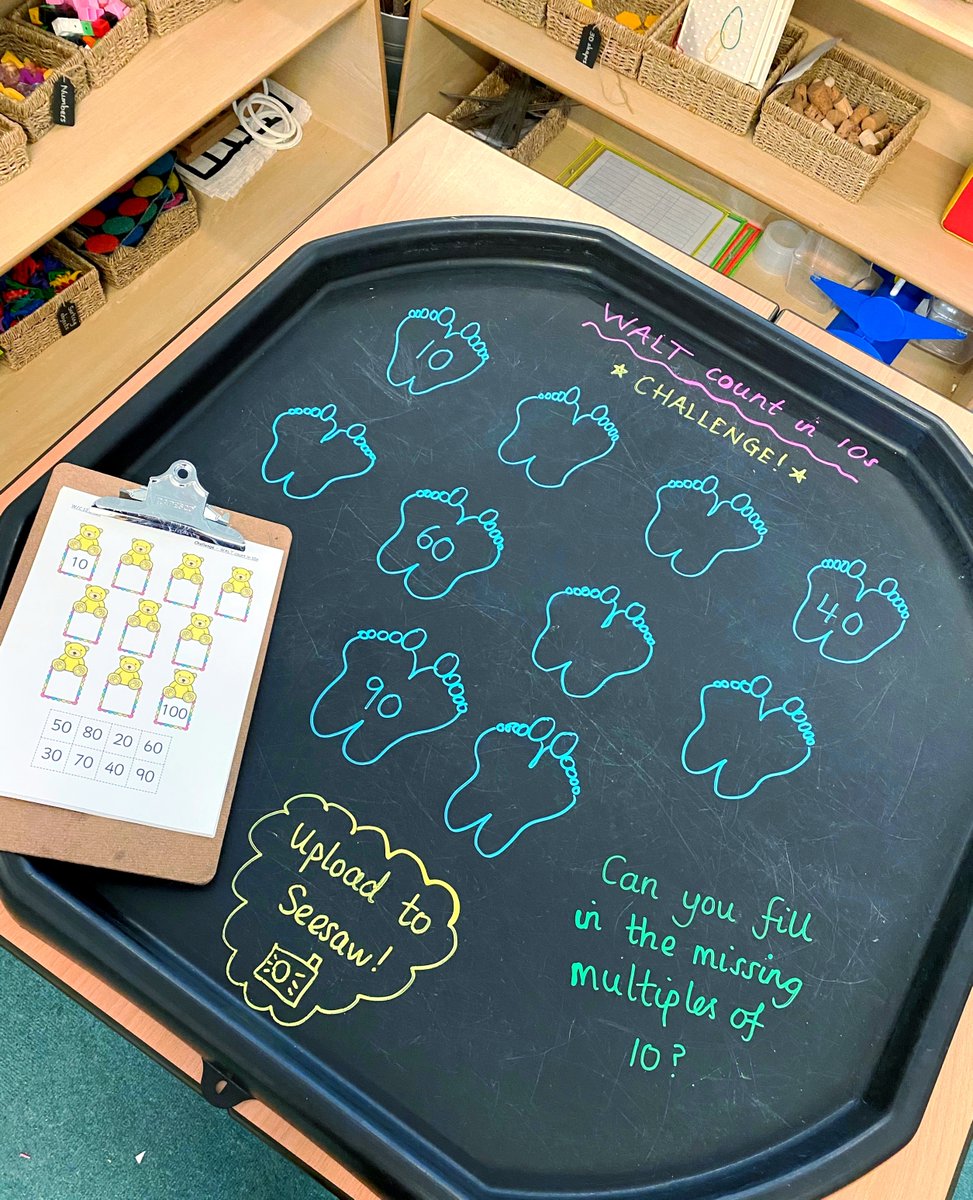 WALT count in 10s
CHALLENGE!
10
60
40
90
Upload to
Seesaw!
Can you fill
in the missing
multiples of
10?
Challenge - WALT count in 10s
10
100
50 80 20 60
30 70 40 90
Numbers